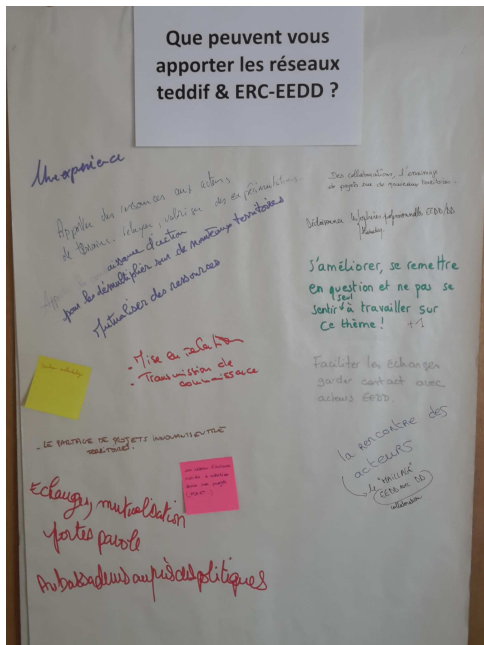 Que peuvent vous
apporter les réseaux
teddif & ERC-EEDD ?
Une expérience
Apporter des ressources aux acteurs
de terrain. relayer, valoriser des expérimentations.
d'action
pour les démultiplier sur de nouveaux territoires
Mutualiser des ressources
- Mise en relation
- Transmission de
connaissance
- LE PARTAGE DE PROJETS INNOVANTS ENTRE
TERRITOIRES.
Echanges, mutualisation
portes parole
Ambassadeurs auprès des politiques
Des collaborations, l'
de projets sur de nouveaux territoires.
S'améliorer, se remettre
en question et ne pas se
sentir seul à travailler sur
ce thème ! +1
Faciliter les échanges
garder contact avec
acteurs EEDD.
la rencontre des
acteurs
le "MAILLAGE"